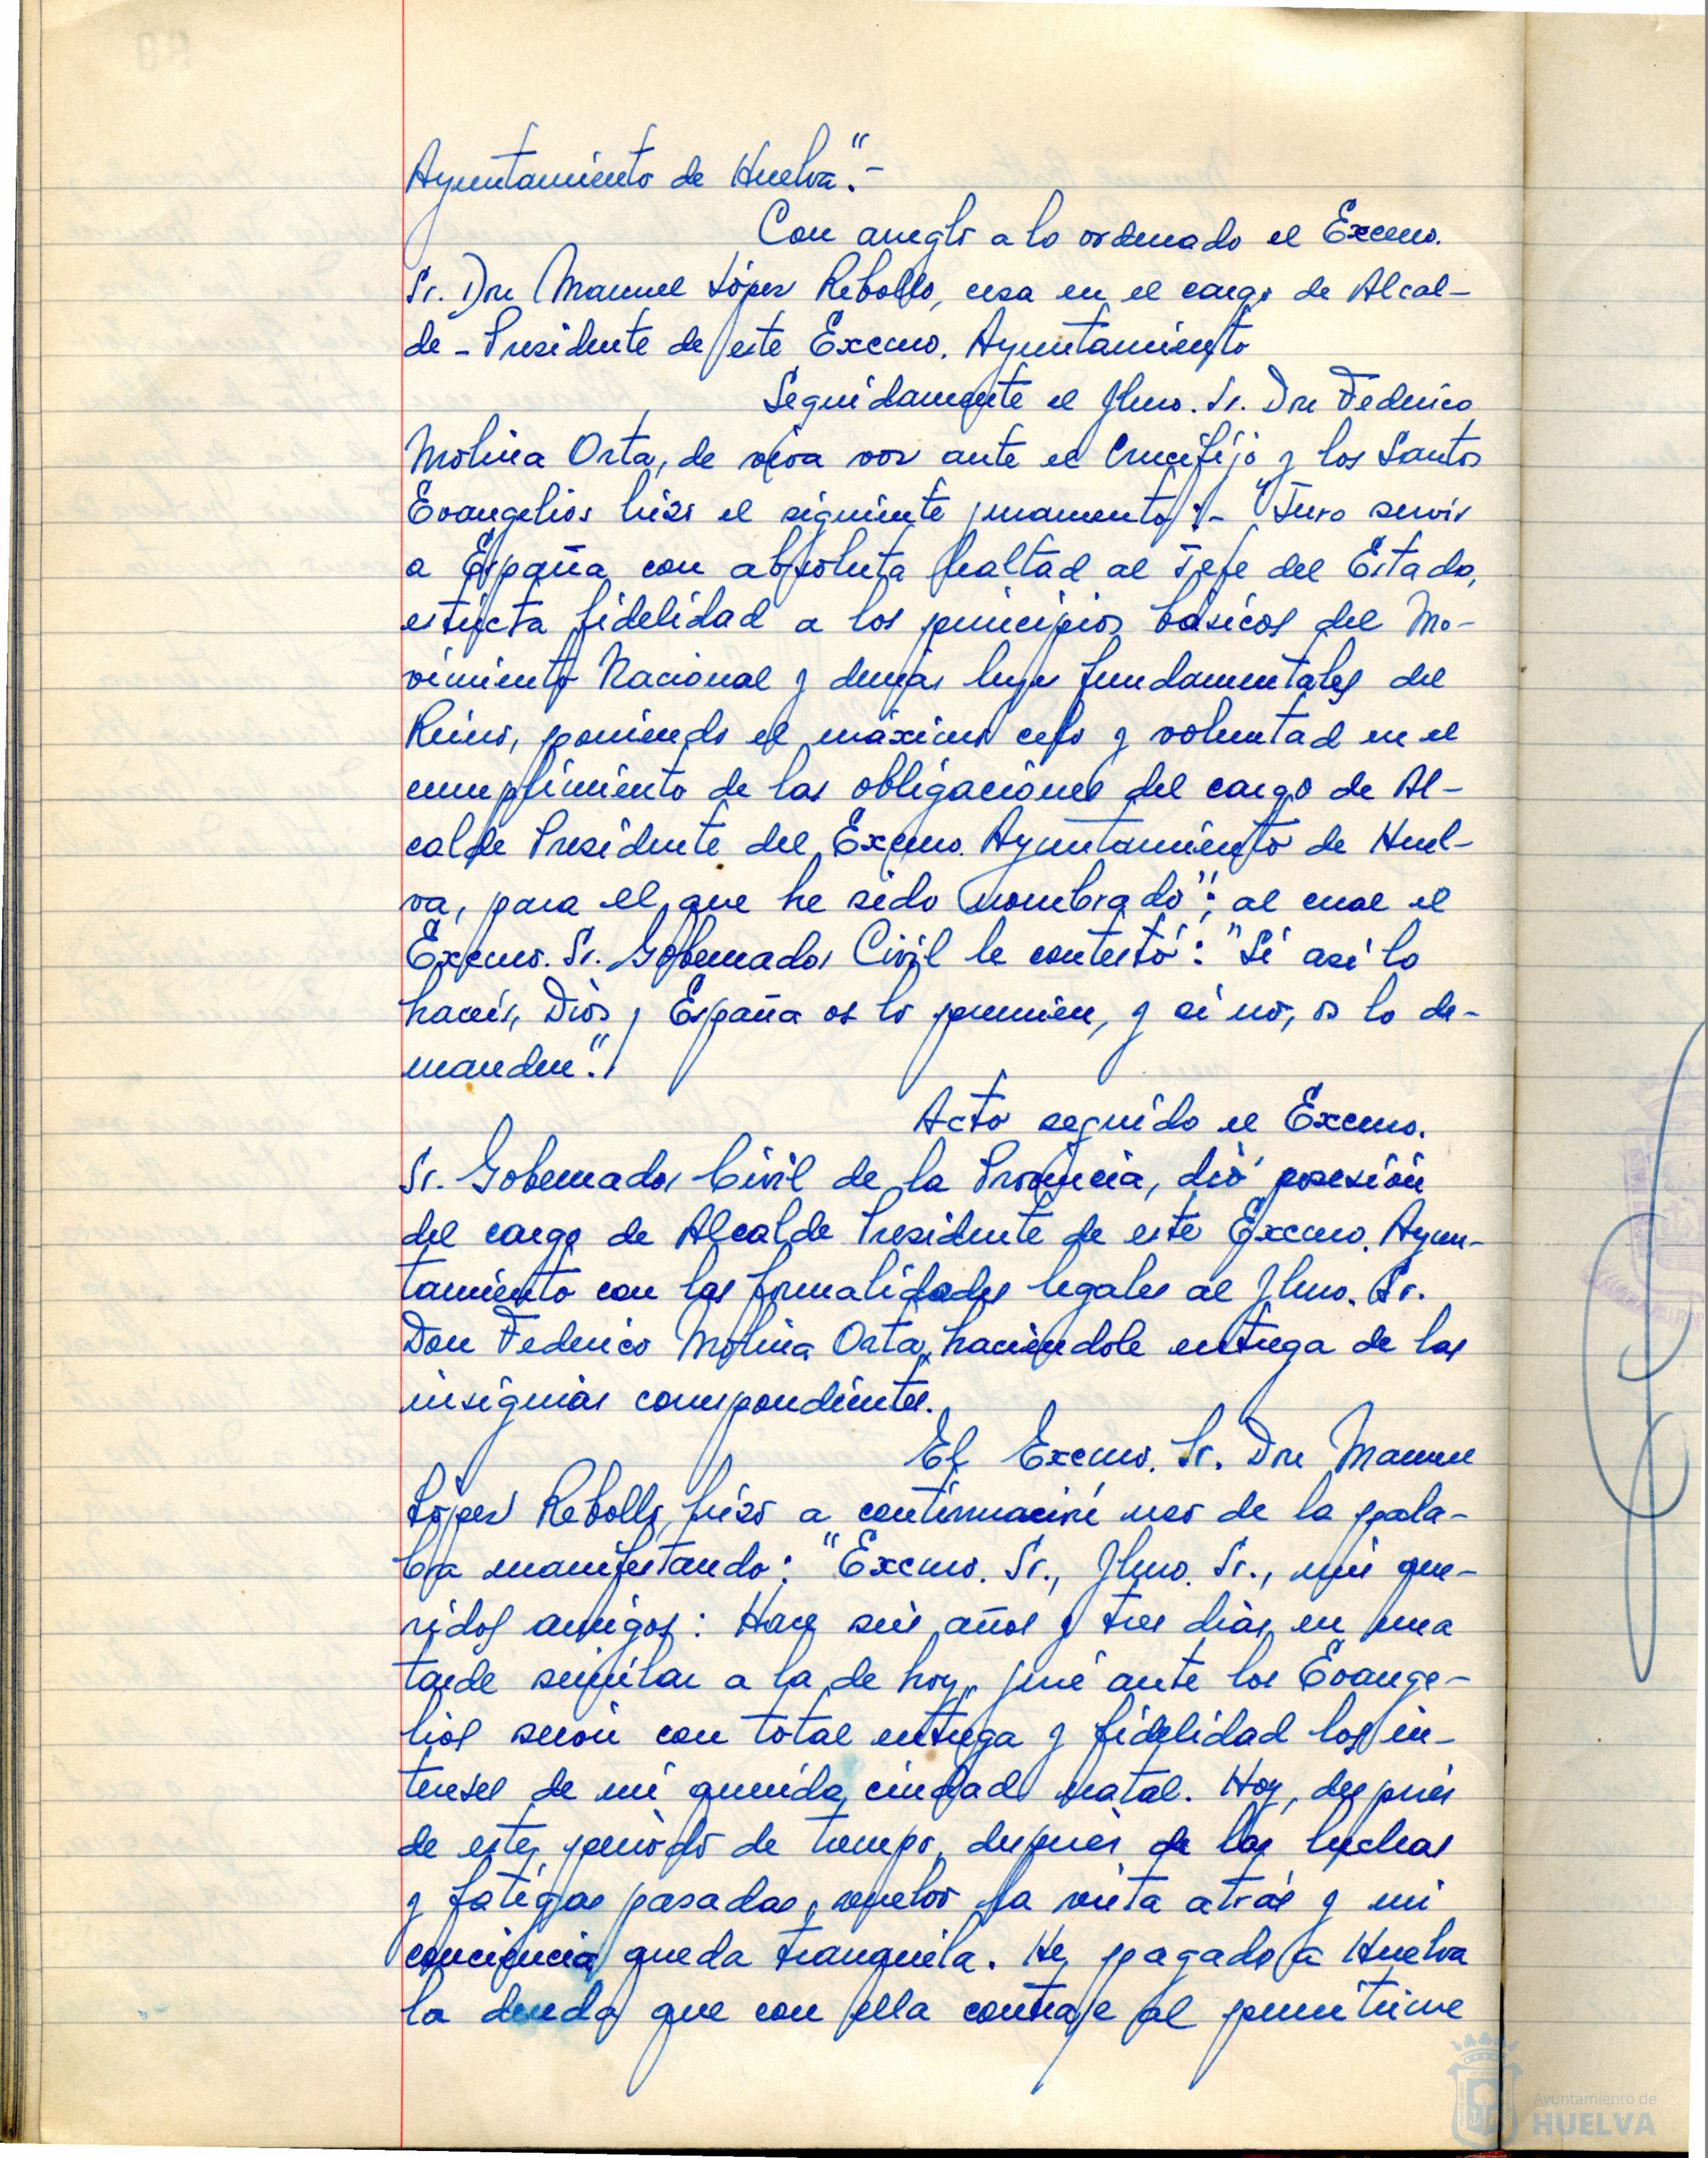 Ayuntamiento de Huelva".-
Con arreglo a lo ordenado el Excmo.
Sr. Don Manuel López Rebollo, cesa en el cargo de Alcal-
de-Presidente de este Excmo. Ayuntamiento
Seguidamente el Ilmo. Sr. Don Federico
Molina Orta, de viva voz ante el Crucifijo y los Santos
Evangelios hizo el siguiente juramento:- "Juro servir
a España con absoluta lealtad al Jefe del Estado,
estricta fidelidad a los principios básicos del Mo-
vimiento Nacional y demás leyes fundamentales del
Reino, poniendo el máximo celo y voluntad en el
cumplimiento de las obligaciones del cargo de Al-
calde Presidente del Excmo. Ayuntamiento de Huel-
va, para el que he sido nombrado"; al cual el
Excmo. Sr. Gobernador Civil le contestó: "Si así lo
hacéis, Dios y España os lo premien, y si no, os lo de-
manden".
Acto seguido el Excmo.
Sr. Gobernador Civil de la Provincia, dió posesión
del cargo de Alcalde Presidente de este Excmo. Ayun-
tamiento con las formalidades legales al Ilmo. Sr.
Don Federico Molina Orta, haciéndole entrega de las
insignias correspondientes.
El Excmo. Sr. Don Manuel
López Rebollo, hizo a continuación uso de la pala-
bra manifestando: "Excmo. Sr., Ilmo. Sr., mis que-
ridos amigos: Hace seis años y tres días, en una
tarde similar a la de hoy, juré ante los Evange-
lios servir con total entrega y fidelidad los in-
tereses de mi querida ciudad natal. Hoy, después
de este periodo de tiempo, después de las luchas
y fatigas pasadas, vuelvo la vista atrás y mi
conciencia queda tranquila. He pagado a Huelva
la deuda que con ella contraje al permitirme
Ayuntamiento de
HUELVA